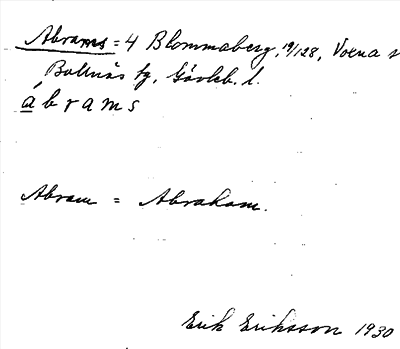 Abrams = 4 Blommaberg, 19/128, Voxna s
Bollnäs tg, Gävleb. l.
ábrams
Abram = Abraham.
Erik Eriksson 1930